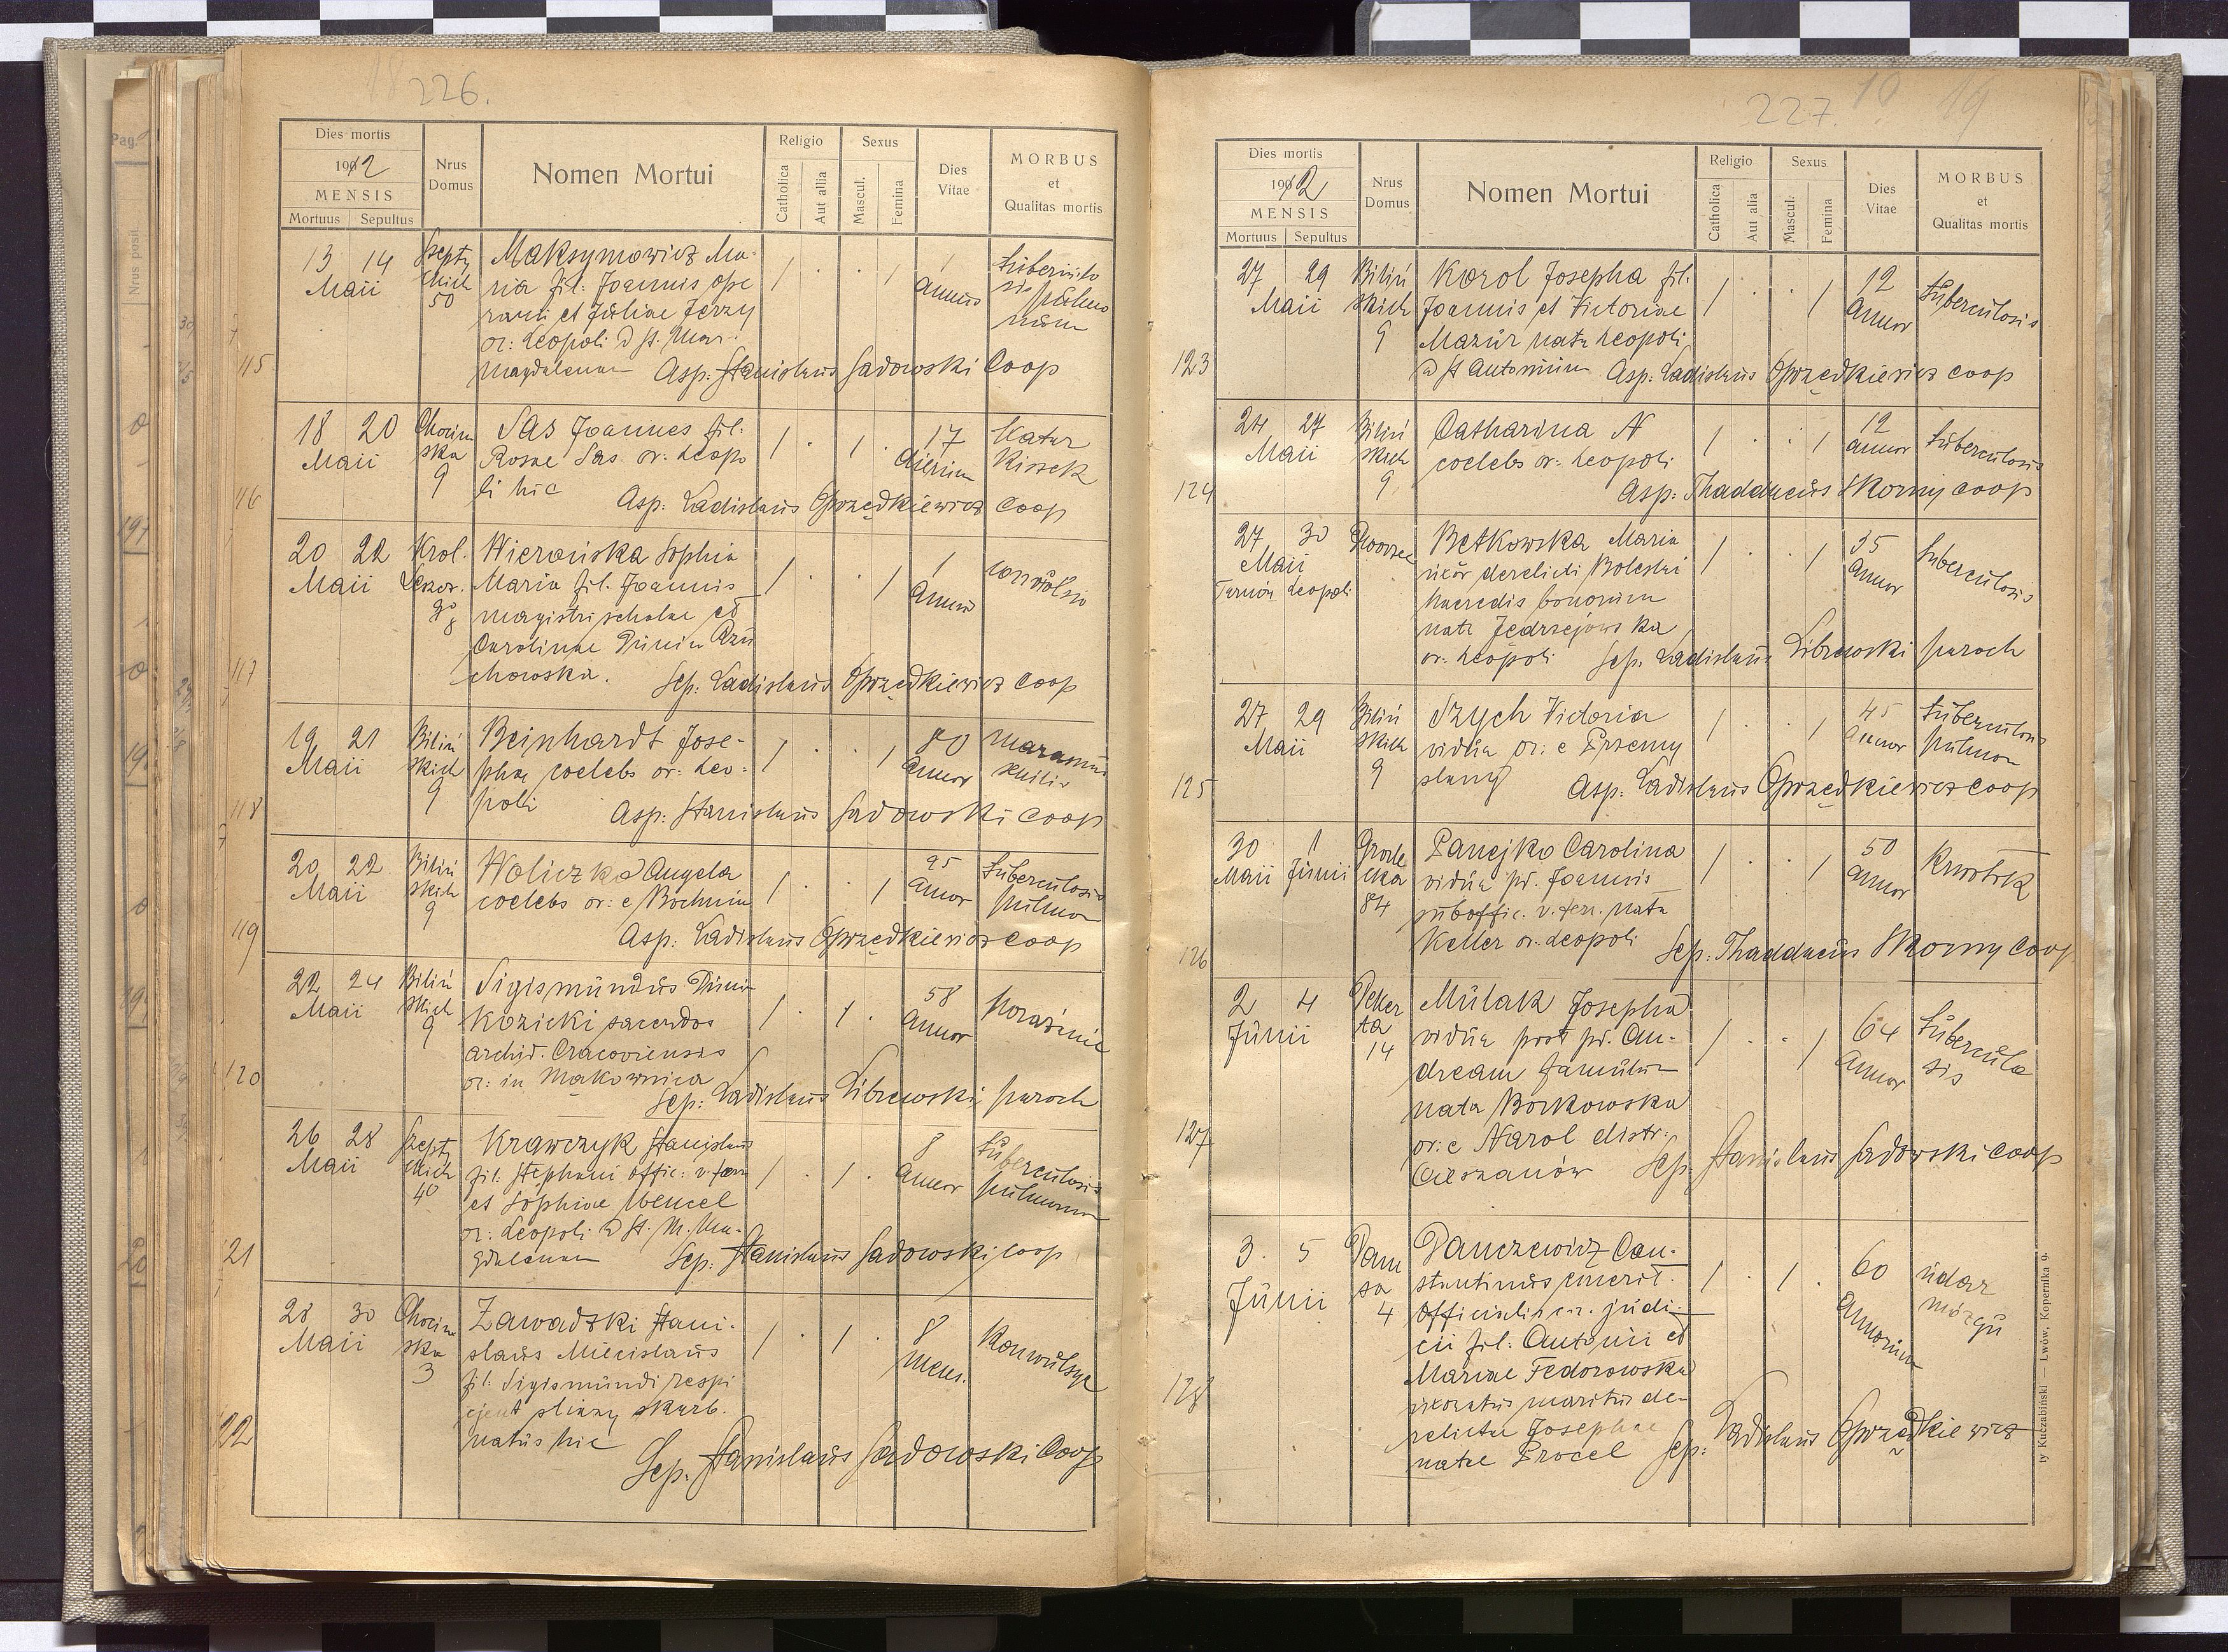 226.
Dies mortis
1912
MENSIS
Mortuus Sepultus
Nrus Domus
Nomen Mortui
Religio
Catholica
Aut allia
Sexus
Mascul.
Femina
Dies Vitae
MORBUS
et
Qualitas mortis
115
13 14 Maii
Szepty
ckich
50
Maksymowicz Ma-
ria fil: Joannis ope
rarii et Juliae Jerzy
or: Leopoli ad st. Mar.
Magdalenam Asp: Stanislaus Sadowski Coop
1 Annus
tuberculo
sis pulmo
num
116
18 20 Maii
Chocim
ska
9
Sas Joannes fil:
Rosae Sas or: Leopo
li hic Asp: Ladislaus Oprzędkiewicz coop
17 dierum
Katar
Kiszek
117
20 22 Maii
Krol.
Leszcz.
8
Wierońska Sophia
Maria fil. Joannis
magistri scholae et
Carolinae Dunin Brzu
chowska. Sep: Ladislaus Oprzędkiewicz coop
1 Anni
convulsio
118
19 21 Maii
Biliń
skich
9
Beinhardt Jose-
pha coelebs or: Leo-
poli Asp: Stanislaus Sadowski coop
80 Annor
Marasmus
senilis
119
20 22 Maii
Biliń
skich
9
Woliczko Angela
coelebs or: e Bochnia
Asp: Ladislaus Oprzędkiewicz coop
95 Annor
tuberculosis
pulmon
120
22 24 Maii
Biliń
skich
9
Sigismundus Dunin
Kozicki sacerdos
archid. Cracoviensis
or: in Makownica
Sep: Ladislaus Librewski paroch
58 Annor
porażenie
121
26 28 Maii
Szepty
ckich
40
Krawczyk Stanislaus
fil: Stephani offic: v. ferr
et Sophiae Wencel
or: Leopoli ad St. M. Ma-
gdalenam Sep: Stanislaus Sadowski coop
8 Annor
tuberculosis
pulmonum
122
28 30 Maii
Chocim
ska
3
Zawadzki Stani-
slaus Miecislaus
fil: Sigismundi respi
cjent straży skarb.
natus hic
Sep. Stanislaus Sadowski Coop
8 mens.
Konwulsye
227. 19
Dies mortis
1912
MENSIS
Mortuus Sepultus
Nrus Domus
Nomen Mortui
Religio
Catholica
Aut alia
Sexus
Mascul.
Femina
Dies Vitae
MORBUS
et
Qualitas mortis
123
27 29 Maii
Biliń
skich
9
Karol Josepha fil.
Joannis et Victoriae
Mazur nata Leopoli
ad st Antonium Asp: Ladislaus Oprzędkiewicz coop
12 Annor
tuberculosis
124
24 27 Maii
Biliń
skich
9
Catharina N
coelebs or: Leopoli
Asp: Thaddaeus Skorny coop
12 annor
tuberculosis
27 30 Maii
Leopoli
Dworzec
Betkowska Maria
uxor derelicti Boleslai
haeredis bonorum
nata Jędrzejowska
or: Leopoli Sep. Ladislaus Librewski paroch
35 Annor
tuberculosis
125
27 29 Maii
Biliń
skich
9
Szych Victoria
vidua or: e Przemy
slany Asp: Ladislaus Oprzędkiewicz coop
45 Annor
tuberculosis
pulmon
126
30 Maii 1 Junii
Grode
cka
84
Panejko Carolina
vidua p. Joannis
suboffic. v. ferr. nata
Keller or. Leopoli Sep: Thaddaeus Skorny Coop
50 annor
Krwotok
127
2 4 Junii
Peker
ta
14
Mulak Josepha
vidua post p. An-
dream famulum
nata Borkowska
or: e Narol distr:
Cieszanów Sep: Stanislaus Sadowski coop
64 Annor
tubercula
sis
128
3. 5 Junii
4
Danczewicz Con-
stantinus emerit.
officialis c.r. judi-
cii fil: Antonii et
Mariae Fedorowska
uxoratus maritus de-
relicta Josephae
natae Procel Sep: Ladislaus Oprzędkiewicz
60 Annorum
udar
mózgu
ty Kuczabiński — Lwów, Kopernika 9.
Pag.
Nrus posit.